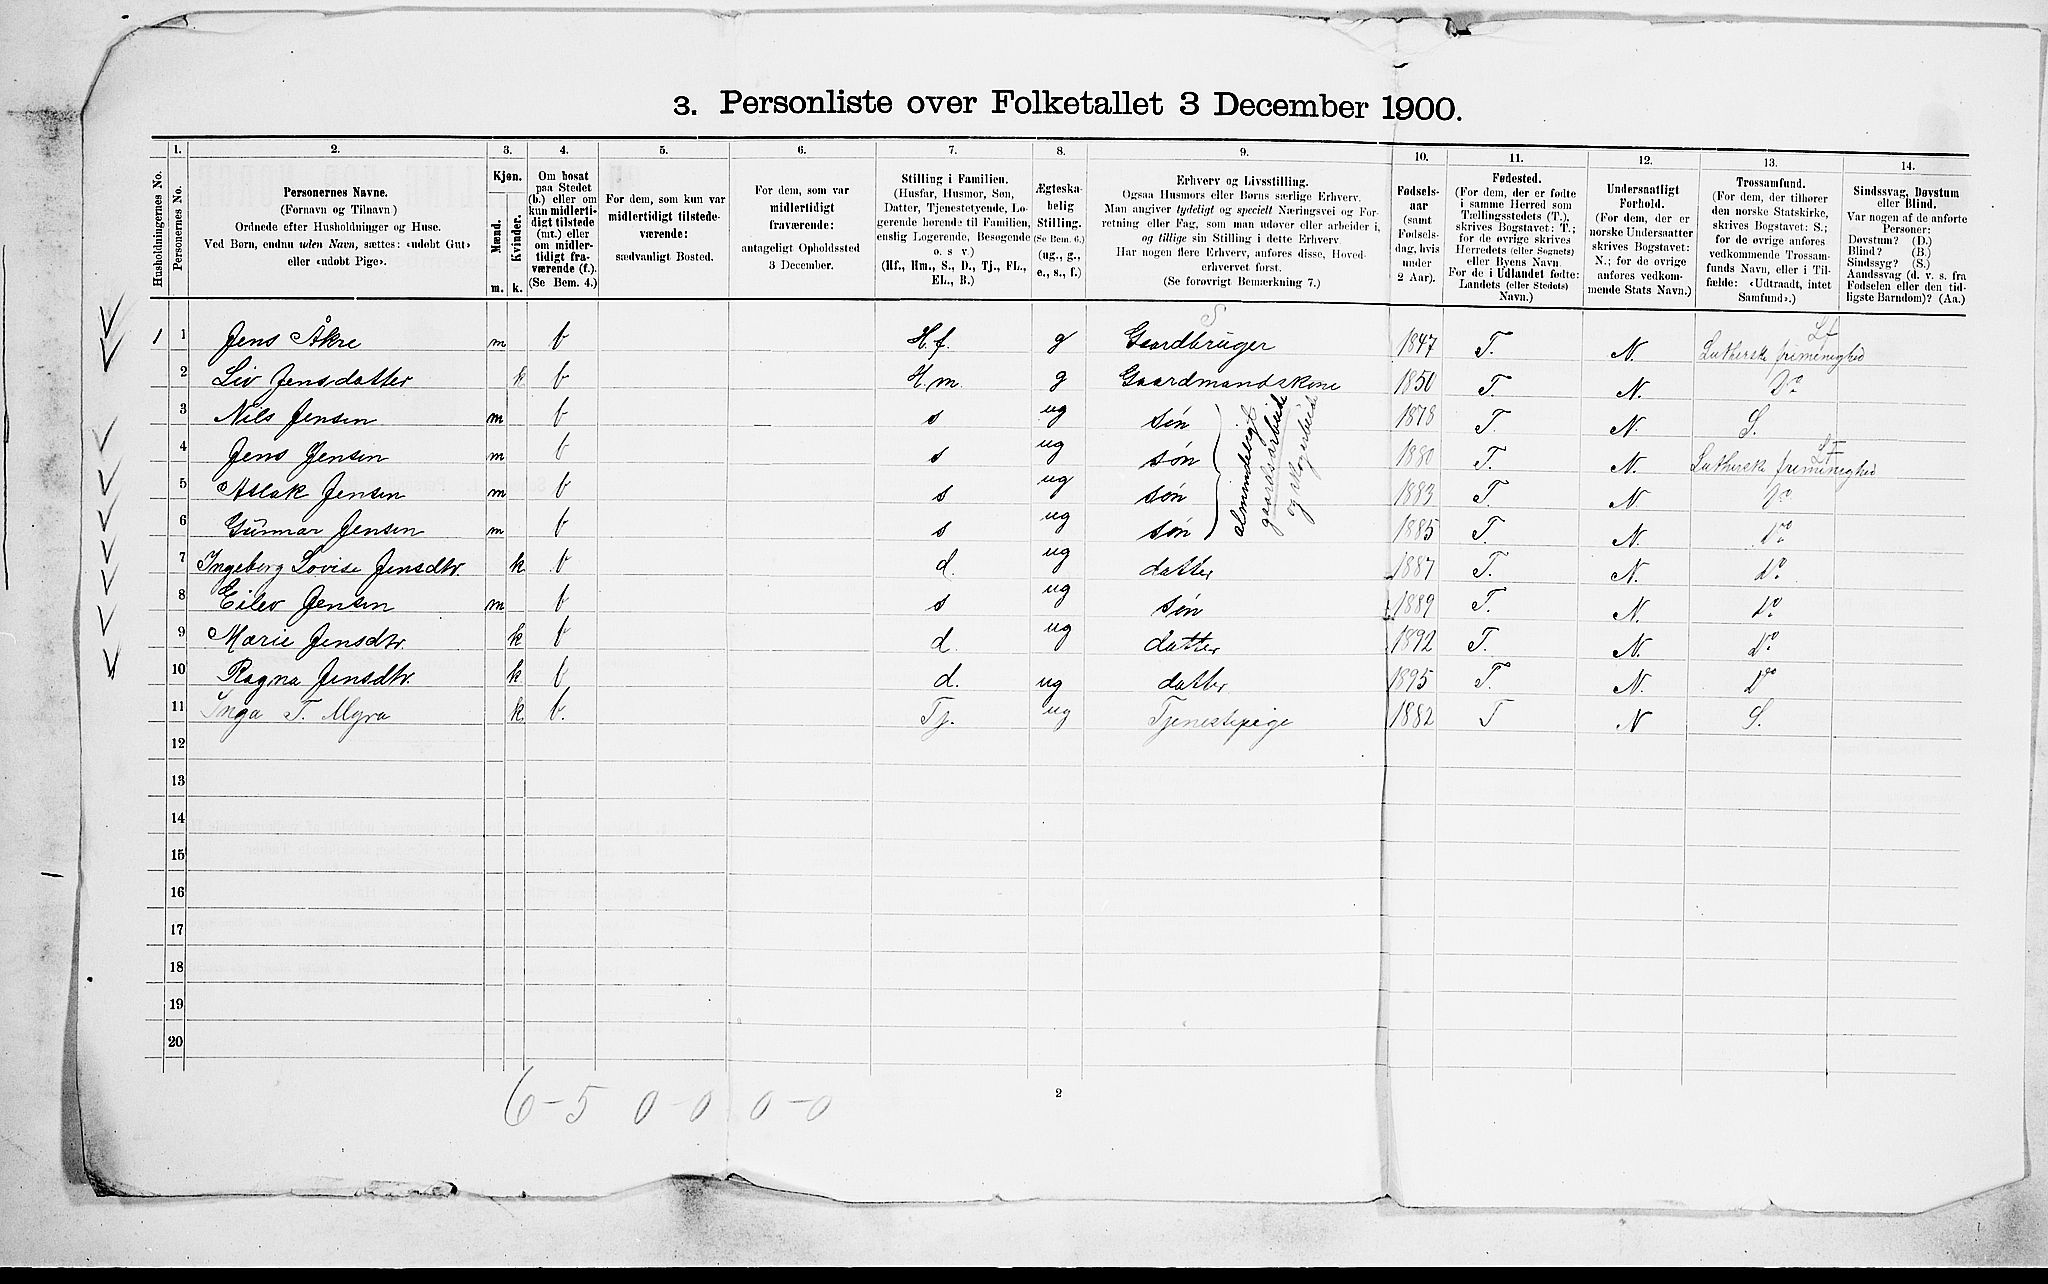 3. Personliste over Folketallet 3 December 1900.
1. 2. 3. 4. 5. 6. 7. 8. 9. 10. 11. 12. 13. 14.
Husholdningernes No.
Personernes No.
Personernes Navne.
(Fornavn og Tilnavn)
Ordnede efter Husholdninger og Huse.
Ved Børn, endnu uden Navn, sættes: «udøbt Gut»
eller «udøbt Pige».
Kjøn.
Mænd.
Kvinder.
m. k.
Om bosat
paa Stedet
(b.) eller om
kun midlerti-
digt tilstede
(mt.) eller
om midler-
tidigt fra-
værende (f.).
(Se Bem. 4.)
For dem, som kun var
midlertidigt tilstede-
værende:
sædvanligt Bosted.
For dem, som var
midlertidigt
fraværende:
antageligt Opholdssted
3 December.
Stilling i Familien.
(Husfar, Husmor, Søn,
Datter, Tjenestetyende, Lo-
gerende hørende til Familien,
enslig Logerende, Besøgende
o. s. v.)
(Hf., Hm., S., D., Tj., FL.,
EL., B.)
Ægteska-
belig
Stilling.
(Se Bem. 6.)
(ug., g.,
e., s., f.)
Erhverv og Livsstilling.
Ogsaa Husmors eller Børns særlige Erhverv.
Man angiver tydeligt og specielt Næringsvei og For-
retning eller Fag, som man udøver eller arbeider i,
og tillige sin Stilling i dette Erhverv.
Har nogen flere Erhverv, anføres disse, Hoved-
erhvervet først.
(Se forøvrigt Bemærkning 7.)
Fødsels-
aar
(samt
Fødsels-
dag, hvis
under
2 Aar).
Fødested.
(For dem, der er fødte
i samme Herred som
Tællingsstedets (T.),
skrives Bogstavet: T.;
for de øvrige skrives
Herredets (eller Sognets)
eller Byens Navn.
For de i Udlandet fødte:
Landets (eller Stedets)
Navn.)
Undersaatligt
Forhold.
(For dem, der er
norske Undersaatter
skrives Bogstavet:
N.; for de øvrige
anføres vedkom-
mende Stats Navn.)
Trossamfund.
(For dem, der tilhører
den norske Statskirke,
skrives Bogstavet: S.;
for de øvrige anføres
vedkommende Trossam-
funds Navn, eller i Til-
fælde: «Udtraadt, intet
Samfund».)
Sindssvag, Døvstum
eller Blind.
Var nogen af de anførte
Personer:
Døvstum? (D.)
Blind? (B.)
Sindssyg? (S.)
Aandssvag (d. v. s. fra
Fødselen eller den tid-
ligste Barndom)? (Aa.)
S
Lf
1 1 Jens Åkre m b H.f. g Gaardbruger 1847 T. N. Lutherske frimenighed
2 Liv Jensdatter k b H.m. g Gaardmandskone 1850 T. N. Do
3 Nils Jensen m b s ug søn 1878 T. N. S.
almindeligt
gaardsarbeide
og skogarbeide
Lf
4 Jens Jensen m b s ug søn 1880 T. N. Lutherske frimenighed
5 Aslak Jensen m b s ug søn 1883 T. N. Do
6 Gunnar Jensen m b s ug søn 1885 T. N. Do
7 Ingeborg Lovise Jensdtr. k b d. ug datter 1887 T. N. Do
8 Eilev Jensen m b s ug søn 1889 T. N. Do
9 Marie Jensdtr. k b d. ug datter 1892 T. N. Do
10 Ragna Jensdtr. k b d. ug datter 1895 T. N. Do
11 Inga T. Myra k. b. Tj. ug Tjenestepige 1882 T N S.
12
13
14
15
16
17
18
19
20
6-5 0-0 0-0
2